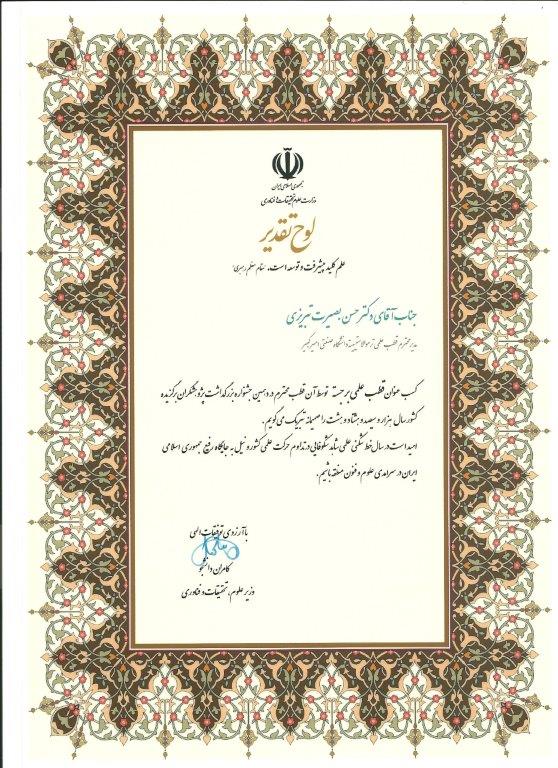 جمهوری اسلامی ایران
وزارت علوم، تحقیقات و فناوری
لوح تقدیر
علم کلید پیشرفت و توسعه است. "مقام معظم رهبری"
جناب آقای دکتر حسن بصیرت تبریزی
مدیر محترم قطب علمی ترمولاستیسیته دانشگاه صنعتی امیرکبیر
کسب عنوان قطب علمی برجسته توسط آن قطب محترم در دهمین جشنواره بزرگداشت پژوهشگران برگزیده
کشور سال هزار و سیصد و هشتاد و هشت را صمیمانه تبریک می گویم.
امید است در سال خط شکنی علمی شاهد شکوفایی در تداوم حرکت علمی کشور و نیل به جایگاه رفیع جمهوری اسلامی
ایران در سرآمدی علوم و فنون منطقه باشیم.
با آرزوی توفیقات الهی
کامران دانشجو
وزیر علوم، تحقیقات و فناوری